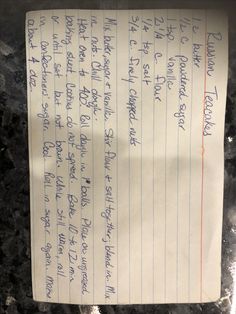 Russian Teacakes
1 c butter
1/2 c. powdered sugar
1 tsp vanilla
2 1/4 c. flour
1/4 tsp salt
3/4 c. finely chopped nuts
Mix butter, sugar & vanilla. Stir flour & salt together, blend in. Mix
in nuts. Chill dough.
Heat oven to 400. Roll dough in 1" balls. Place on ungreased
baking sheet. Cookies do not spread. Bake 10 to 12 min
or until set but not brown. While still warm, roll
in confectioners sugar. Cool. Roll in sugar again. Makes
about 4 doz.